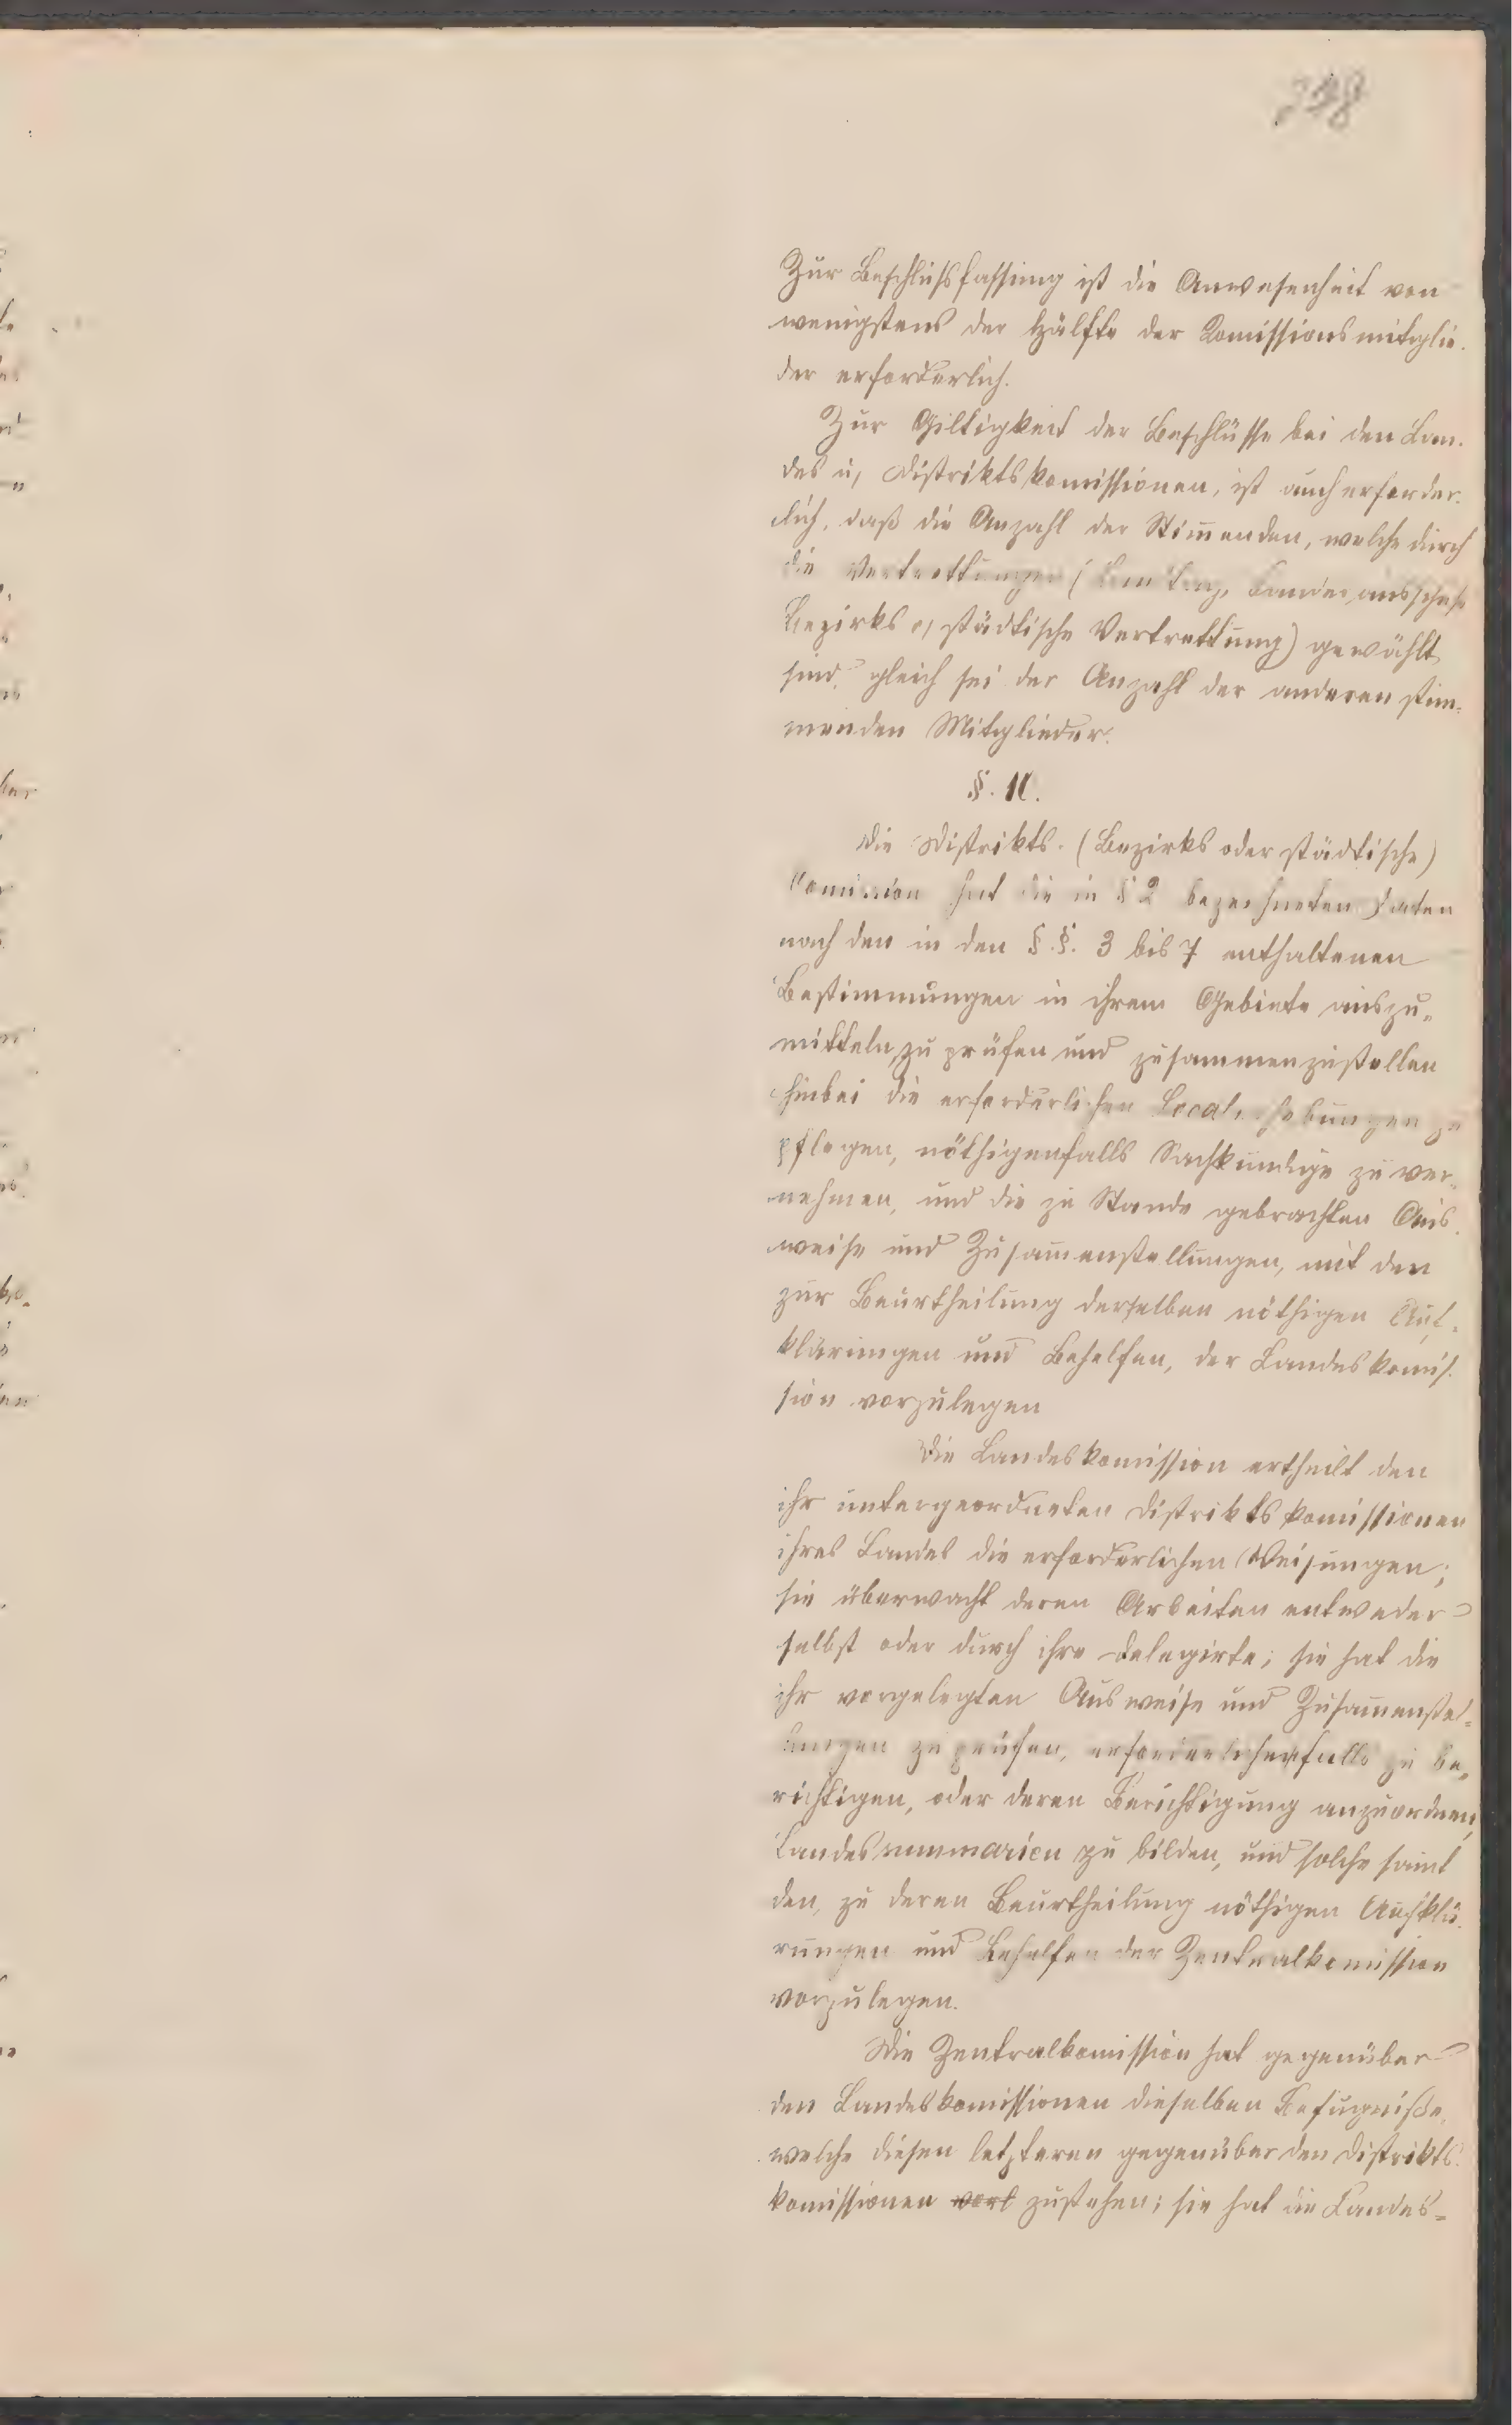 Zur Beschlußfassung ist die Anwesenheit von
wenigstens der Hälfte der Komissionsmitglie-
der erforderlich.
Zur Giltigkeit der Beschlüsse bei den Lan-
des u, Distriktskomissionen, ist auch erforder-
lich, daß die Anzahl der Stim̅enden, welche durch
die Vertrettungen (Landtag, Landesausschuß
Bezirks o, städtische Vertrettung) gewählt
sind, gleich sei der Anzahl der anderen stim-
menden Mitglieder.
§. 11.
Die Distrikts- (Bezirks oder städtische)
Komission hat die in § 2 bezeichneten Daten
nach den in den §.§. 3 bis 7 enthaltenen
Bestimmungen in ihrem Gebiete auszu-
mitteln, zu prüfen und zusammenzustellen
hiebei die erforderlichen Localerhebungen zu
pflegen, nöthigenfalls Sachkundige zu ver-
nehmen, und die zu Stande gebrachten Aus-
weise und Zusam̅enstellungen, mit den
zur Beurtheilung derselben nöthigen Auf-
klärungen und Behelfen, der Landeskomis-
sion vorzulegen
Die Landeskomission ertheilt den
ihr untergeordneten Distriktskomissionen
ihres Landes die erforderlichen Weisungen;
sie überwacht deren Arbeiten entweder
selbst oder durch ihre Delegirte; sie hat die
ihr vorgelegten Ausweise und Zusam̅enstel-
lungen zu prüfen, erforderlichenfalls zu be-
richtigen, oder deren Berichtigung anzuordnen,
Landessummarien zu bilden, und solche samt
den, zu deren Beurtheilung nöthigen Aufklä-
rungen und Behelfen der Zentralkomission
vorzulegen.
Die Zentralkomission hat gegenüber
den Landeskomissionen dieselben Befugniße,
welche diesen letzteren gegenüber den Distrikts-
komissionen vorl zustehen; sie hat die Landes-